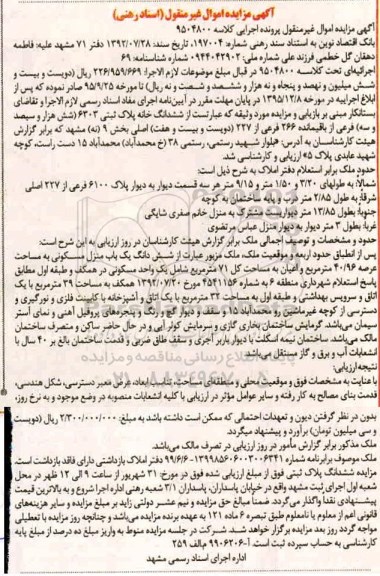 آگهی مزایده اموال غیرمنقول (اسناد رهنی)
آگهی مزایده اموال غیرمنقول پرونده اجرایی کلاسه ۹۵۰۴۸۰۰
بانک اقتصاد نوین به استناد سند رهنی شماره: ۱۹۷۰۰۴، تاریخ سند: ۱۳۹۲/۰۷/۲۸ دفتر ۷۱ مشهد علیه: فاطمه
دهقان گل خطمی فرزند علی شماره ملی: ۰۹۴۴۰۴۲۹۰۲ شماره شناسنامه: ۶۹
اجرائیه‌ای تحت کلاسه ۹۵۰۴۸۰۰ در قبال مبلغ موضوعات لازم الاجرا: ۲۲۶/۹۵۹/۶۶۹ ریال (دویست و بیست و
شش میلیون و نهصد و پنجاه و نه هزار و ششصد و شصت و نه ریال) تا مورخه ۹۵/۹/۲۵ صادر نموده که پس از
ابلاغ اجراییه در مورخه ۱۳۹۵/۱۲/۸ در پایان مهلت مقرر در آیین‌نامه اجرای مفاد اسناد رسمی لازم الاجرا و تقاضای
بستانکار مبنی بر بازیابی و مزایده مورد وثیقه که عبارتست از ششدانگ خانه پلاک ثبتی ۶۳۰۳ (شش هزار و سیصد
و سه) فرعی از باقیمانده ۲۶۶ فرعی از ۲۲۷ (دویست و بیست و هفت) اصلی بخش ۹ (نه) مشهد که برابر گزارش
هیئت کارشناسان به آدرس: «بلوار شهید رستمی، رستمی ۳۸ (خ محمدآباد) محمدآباد ۱۵ دست راست، کوچه
شهید عابدی پلاک ۵» ارزیابی و کارشناسی شد.
حدود ملک برابر استعلام دفتر املاک به شرح ذیل است:
شمالا: به طولهای ۳/۲۰ و ۱/۵۰ متر و ۹/۱۵ متر هر سه قسمت دیوار به دیوار پلاک ۶۱۰۰ فرعی از ۲۲۷ اصلی
شرقا: به طول ۲/۸۵ متر درب و پایه ساختمان به کوچه
جنوبا: بطول ۱۳/۸۵ متر دیواریست مشترک به منزل خانم صفری شایگی
غربا بطول ۳ متر دیوار به دیوار منزل عباس مرتضوی
حدود و مشخصات و توصیف اجمالی ملک برابر گزارش هیئت کارشناسان در روز ارزیابی به این شرح است:
پس از انطباق حدود اربعه و موقعیت ملک، ملک مزبور عبارت از شش دانگ یک باب منزل مسکونی به مساحت
عرصه ۴۰/۹۶ مترمربع و اعیان به مساحت کل ۷۱ مترمربع شامل یک واحد مسکونی در همکف و طبقه اول مطابق
پاسخ استعلام شهرداری منطقه ۶ به شماره 4541156 مورخ ۱۳۹۲/۰۷/۲۰ همکف به مساحت ۳۹ مترمربع با یک
اتاق و سرویس بهداشتی و طبقه اول به مساحت ۳۲ مترمربع با یک اتاق و آشپزخانه با کابینت فلزی و نورگیری و
دسترسی از کوچه غیرماشین رو محمدآباد ۱۵ و سقف و دیوار گچ و رنگ و پنجره‌های پروفیل آهنی و نمای آستر
سیمان می‌باشد. گرمایش ساختمان بخاری گازی و سرمایش کولر آبی و در حال حاضر ساکن و متصرف ساختمان
مالک می‌باشد. ساختمان نیمه اسکلت با دیوار باربر آجری و سقف طاق ضربی و قدمت ساختمان بالغ بر ۴۰ سال با
انشعابات آب و برق و گاز مستقل می‌باشد.
نتیجه ارزیابی:
با عنایت به مشخصات فوق و موقعیت محلی و منطقه‌ای مساحت، تناسب ابعاد، عرض معبر دسترسی، شکل هندسی،
قدمت بنای مصالح به کار رفته و سایر عوامل مؤثر در ارزیابی با کلیه انشعابات منصوبه در وضع موجود و به نرخ روز،
بدون در نظر گرفتن دیون و تعهدات احتمالی که ممکن است داشته باشد به مبلغ: ۲/۳۰۰/۰۰۰/۰۰۰ ریال (دویست
و سی میلیون تومان) برآورد و پیشنهاد میگردد.
ملک مذکور برابر گزارش مأمور در روز ارزیابی در تصرف مالک می‌باشد.
ملک موصوف برابرنامه شماره ۱۳۹۹۸۵۶۰۶۰۰۲۰۰۶۳۴۱-۹۹/۶/۶ دفتر املاک بازداشتی دارای فاقد بازداشت است.
مزایده ششدانگ پلاک ثبتی فوق از مبلغ ارزیابی شده فوق در مورخ: ۳۱ شهریور از ساعت ۹ الی ۱۲ ظهر در محل
شعبه اول اجرای ثبت مشهد واقع در خیابان پاسداران، پاسداران ۳/۱ شعبه رهنی اداره اجرا شروع و به بالاترین قیمت
پیشنهادی نقدا واگذار می‌گردد. ضمنا مبالغ حق مزایده و نیم عشر دولتی زاید بر مبلغ مزایده و سایر هزینه‌های
قانونی اعم از معلوم یا نامعلوم طبق تبصره ۶ ماده ۱۲۱ به عهده برنده مزایده می‌باشد و چنانچه روز مزایده با تعطیلی
مواجه گردد روز بعد مزایده برگزار خواهد شد. شرکت در جلسه مزایده منوط به واریز مبلغ ده درصد از مبلغ پایه
کارشناسی به حساب سپرده ثبت است. آ-۹۹۰۶۲۰۶ م‌الف ۲۵۹
اداره اجرای اسناد رسمی مشهد